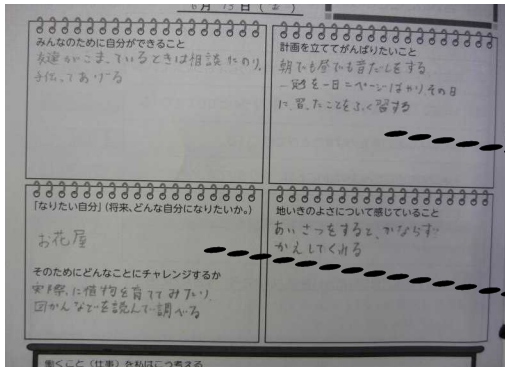 6月15日(土)
みんなのために自分ができること
友達がこまっているときは相談にのり、
手伝ってあげる
計画を立ててがんばりたいこと
朝でも昼でも音だしをする
一勉を一日二ページばかり、その日
に、習ったことをふく習する
「なりたい自分」(将来、どんな自分になりたいか。)
お花屋
そのためにどんなことにチャレンジするか
実際に植物を育ててみたり
図かんなどを読んで調べる
地いきのよさについて感じていること
あいさつをすると、かならず
かえしてくれる
働くこと(仕事)を私はこう考える